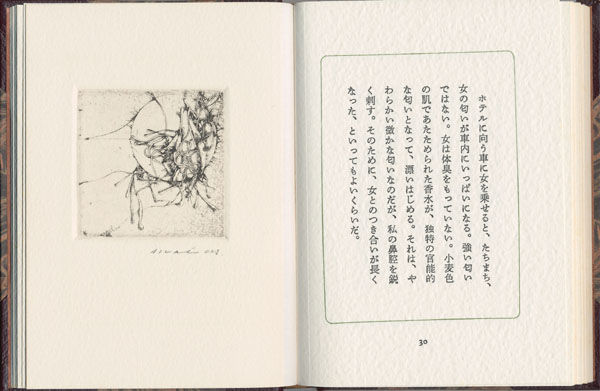 ホテルに向う車に女を乗せると、たちまち、
女の匂いが車内にいっぱいになる。強い匂い
ではない。女は体臭をもっていない。小麦色
の肌であたためられた香水が、独特の官能的
な匂いとなって、漂いはじめる。それは、や
わらかい微かな匂いなのだが、私の鼻腔を鋭
く刺す。そのために、女とのつき合いが長く
なった、といってもよいくらいだ。
30